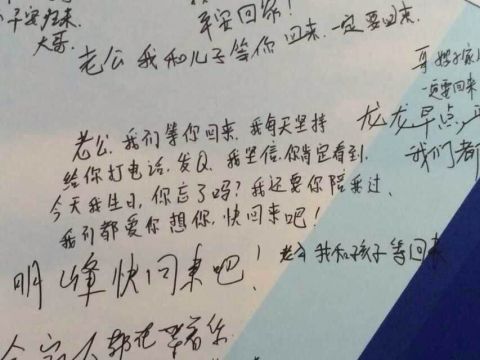 平安归来
大哥.
平安回家!
老公 我和儿子等你 回来. 一定要回来.
一定要回来
老公. 我们等你回来. 我每天坚持
给你打电话. 发Q. 我坚信. 你肯定看到.
今天我生日, 你忘了吗? 我还要你陪我过、
我们都爱你 想你, 快回来吧!
龙龙早点
我们都
明峰快回来吧!
老公 我和孩子等回来